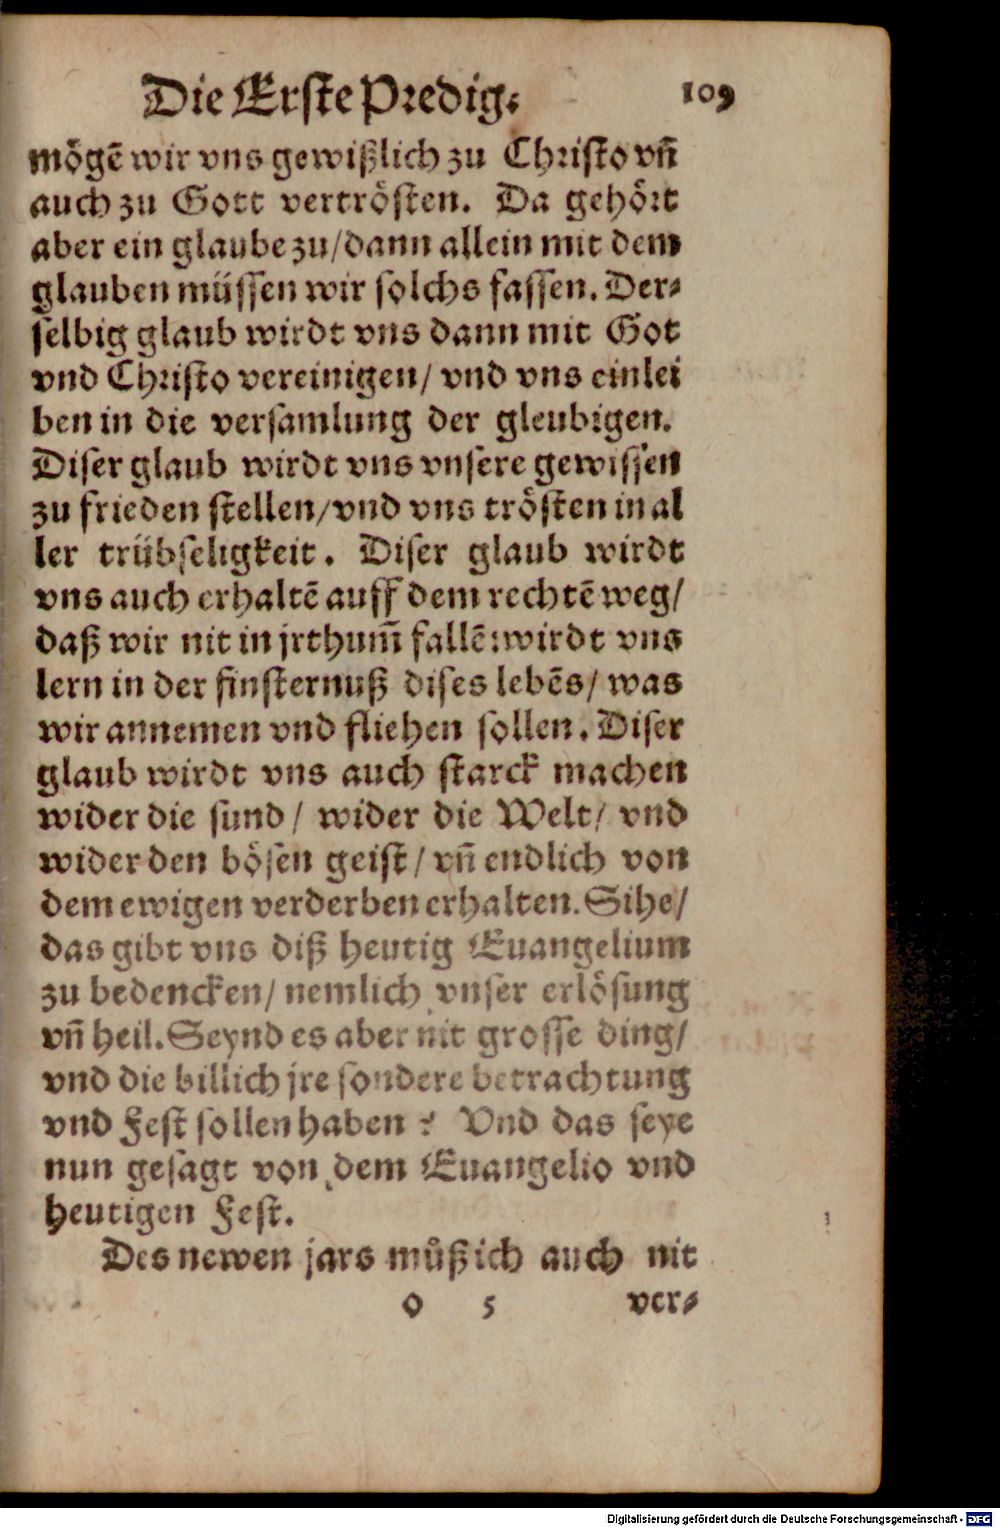 Die Erste Predig. 109
mögē wir vns gewißlich zu Christo vñ
auch zu Gott vertrösten. Da gehört
aber ein glaube zu/dann allein mit dem
glauben müssen wir solchs fassen. Der-
selbig glaub wirdt vns dann mit Got
vnd Christo vereinigen/ vnd vns einlei
ben in die versamlung der gleubigen.
Diser glaub wirdt vns vnsere gewissen
zu frieden stellen/vnd vns trösten in al
ler trübseligkeit. Diser glaub wirdt
vns auch erhaltē auff dem rechtē weg/
daß wir nit in jrthum̃ fallē: wirdt vns
lern in der finsternuß dises lebēs/ was
wir annemen vnd fliehen sollen. Diser
glaub wirdt vns auch starck machen
wider die sund/ wider die Welt/ vnd
wider den bösen geist/ vñ endlich von
dem ewigen verderben erhalten. Sihe/
das gibt vns diß heutig Euangelium
zu bedencken/ nemlich vnser erlösung
vñ heil. Seynd es aber nit grosse ding/
vnd die billich jre sondere betrachtung
vnd Fest sollen haben? Vnd das seye
nun gesagt von dem Euangelio vnd
heutigen Fest.
Des newen jars můß ich auch nit
O 5 ver-
Digitalisierung gefördert durch die Deutsche Forschungsgemeinschaft - DFG